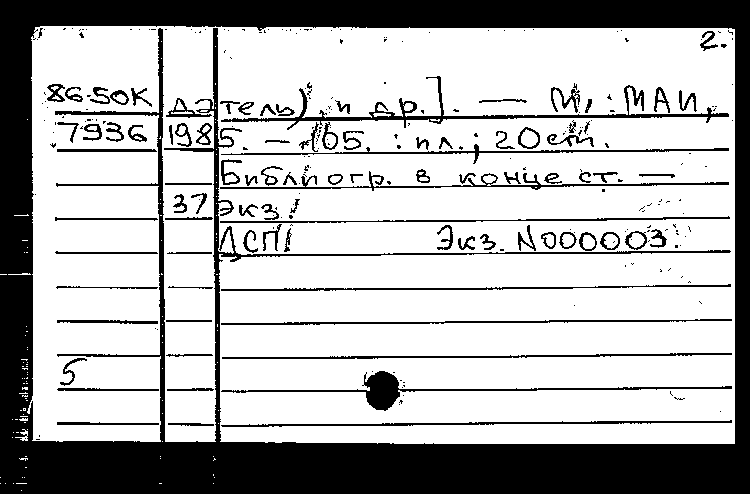 2.
86-50К дэтель), и др.]. — М. : МАИ,
7936 1985. — 105. : ил.; 20см.
Библиогр. в конце ст. —
37 экз.
ДСП! Экз. N000003.
5